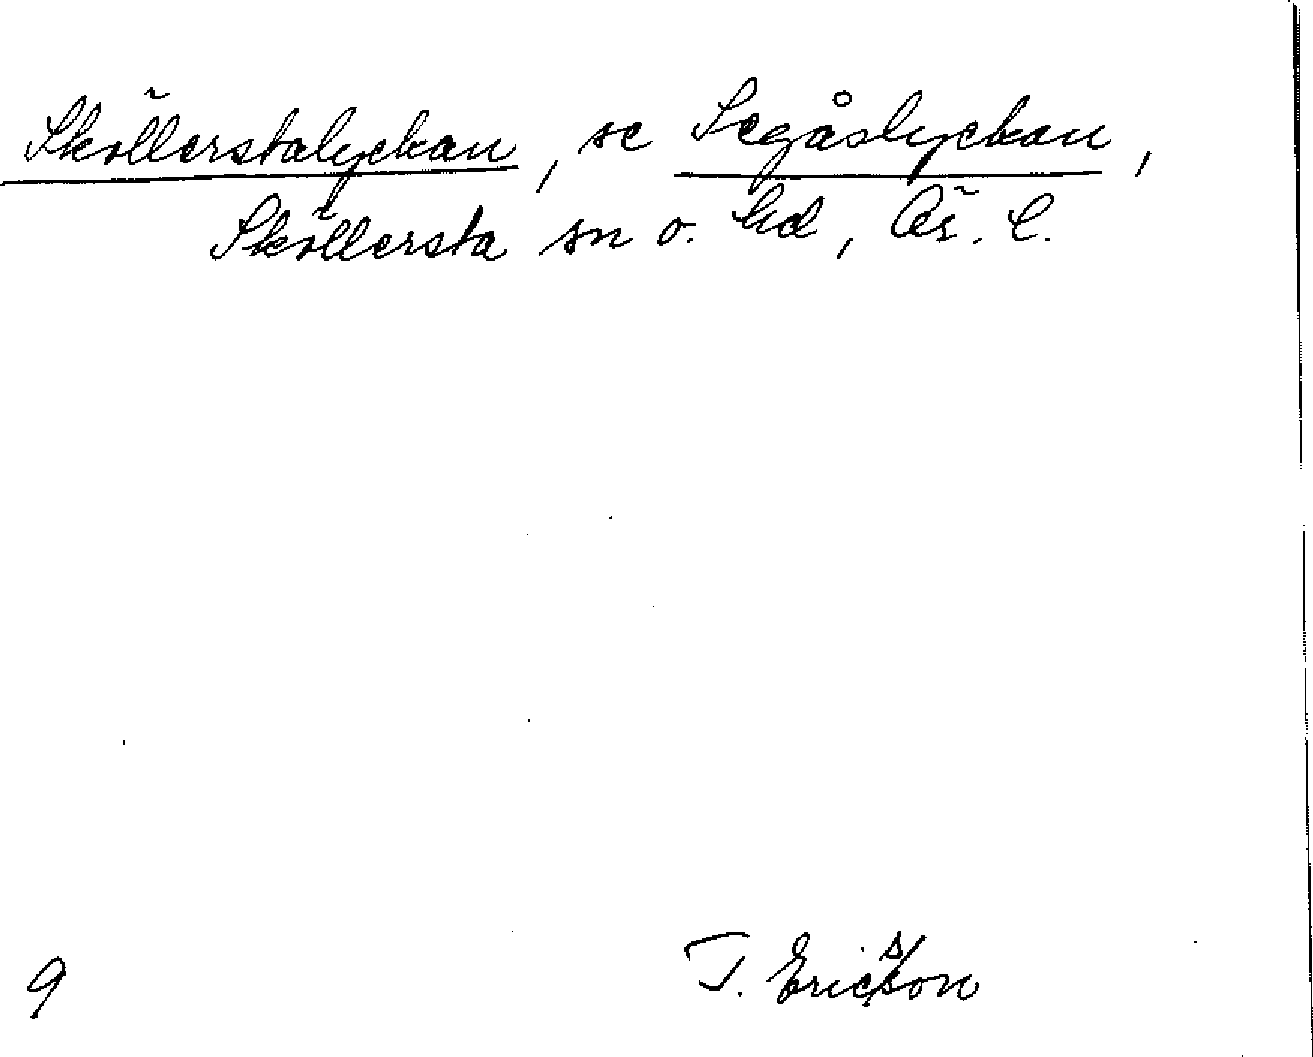 Sköllerstalyckan, se Segåslyckan,
Sköllersta sn o. hd, Ör. l.
9
T. Ericsson